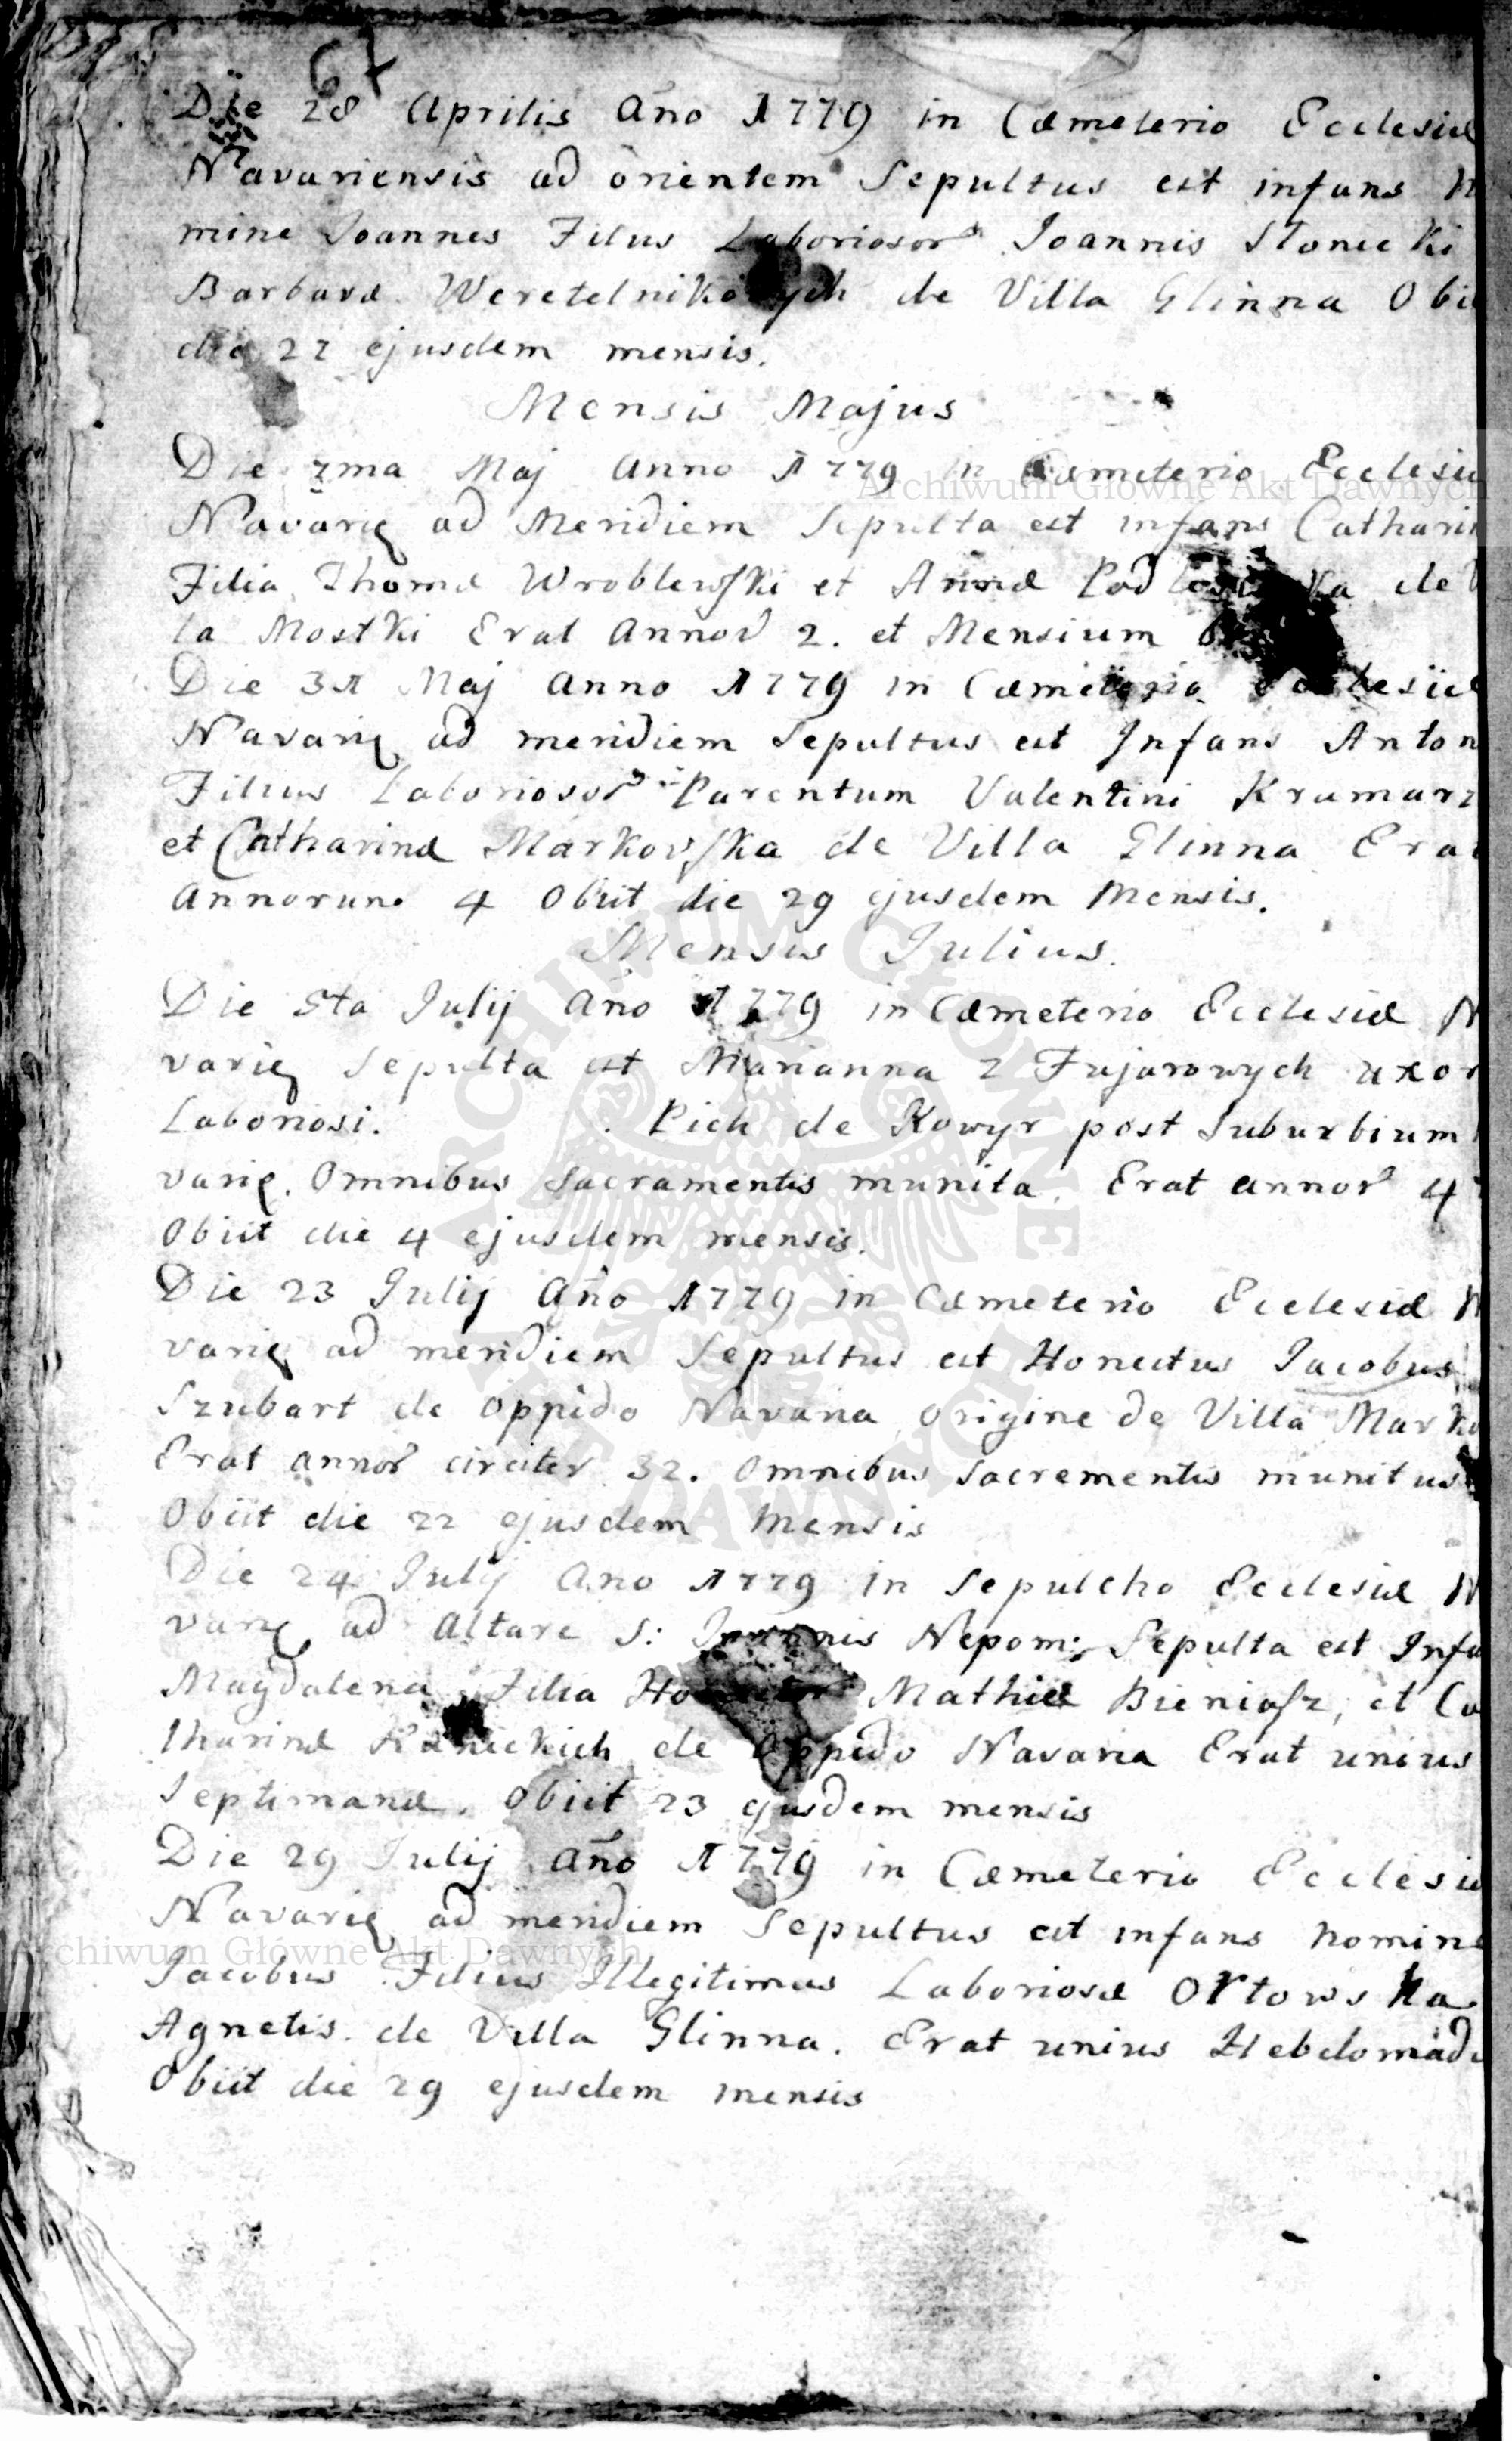 67
Die 28 Aprilis Año 1779 in Cæmeterio Ecclesiæ
Navariensis ad orientem Sepultus est infans
mine Joannes Filus Laboriosor Joannis Stonecki
Barbaræ Weretelnikowych de Villa Glinna Obii
die 27 ejusdem mensis.
Mensis Majus
Die 7ma Maj Anno 1779 in Cæmeterio Ecclesiæ
Navarię ad Meridiem Sepulta est infans Catharin
Filia Thomæ Wroblewski et Annæ de
la Mostki Erat Annor 2. et Mensium
Die 31 Maj Anno 1779 in Cæmeterio Ecclesiæ
Navarię ad meridiem Sepultus est Infans Anton
Filius Laboriosor Parentum Valentini Kramarz
et Catharinæ Markowska de Villa Glinna Erat
Annorum 4 Obiit die 29 ejusdem Mensis.
Mensis Julius.
Die 5ta Julij Año 1779 in Cæmeterio Ecclesiæ N
varię Sepulta est Marianna z Fujarowych uxor
Laboriosi. Pich de Kowyr post Suburbium
varię. Omnibus Sacramentis munita. Erat annor 4
Obiit die 4 ejusdem mensis.
Die 23 Julij Año 1779 in Cæmeterio Ecclesiæ N
varię ad meridiem Sepultus est Honestus Jacobus
Szubart de Oppido Navaria origine de Villa Marko
Erat annor circiter 32. Omnibus Sacrementis munitus
Obiit die 22 ejusdem Mensis
Die 24 Julij Ano 1779 in Sepulcho Ecclesiæ N
varię ad Altare S: Joannis Nepom: Sepulta est Infa
Magdalena Filia Mathiæ Bieniasz, et Ca
tharinæ Kanickich de Oppido Navaria Erat unius
Septimanæ. Obiit 23 ejusdem mensis
Die 29 Julij Año 1779 in Cæmeterio Ecclesiæ
Navarię ad meridiem Sepultus est infans nomine
Jacobus Filius Illegitimus Laboriosæ Ortowska
Agnetis de Villa Glinna. Erat unius Hebdomadæ
Obiit die 29 ejusdem mensis
Archiwum Główne Akt Dawnych
Archiwum Główne Akt Dawnych
ARCHIWUM GŁÓWNE AKT DAWNYCH